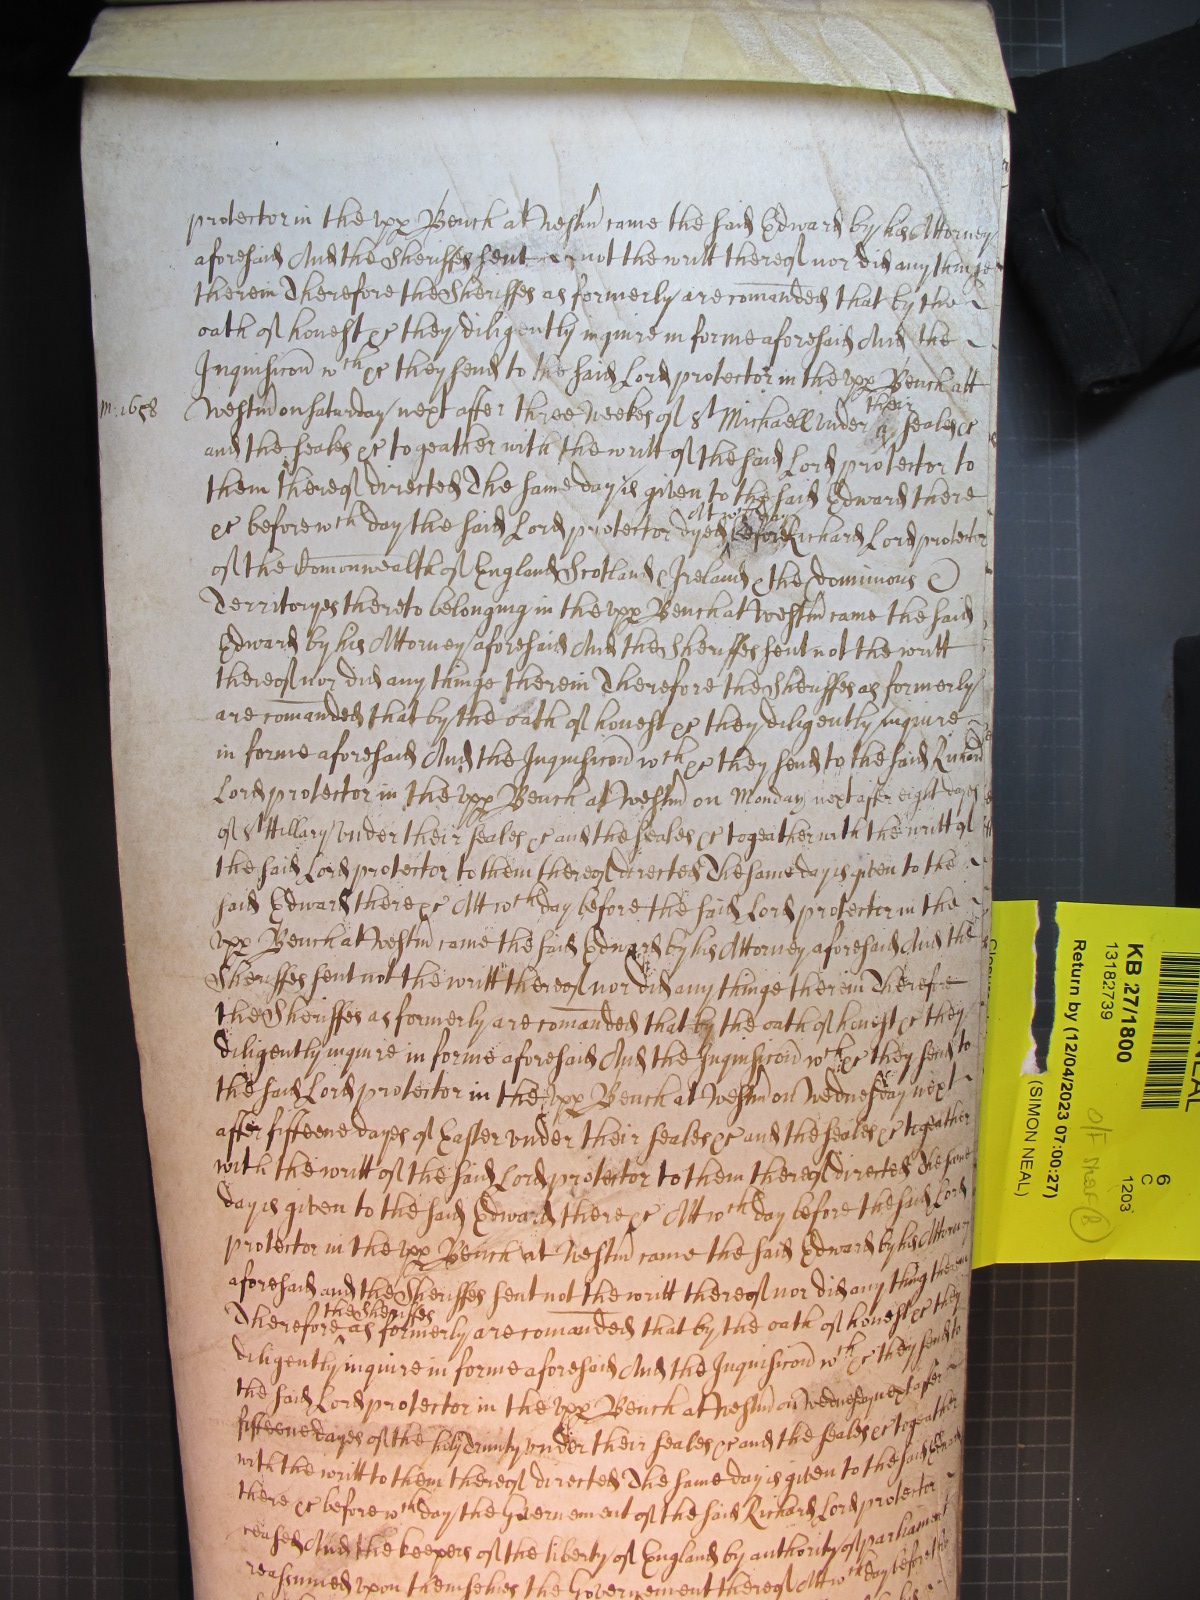 protector in the upp Bench at Westm came the said Edward by his Attorney
aforesaid And the Sheriffes sent not the writt thereof nor did any thinge
therein Therefore the Sheriffes as formerly are comanded that by the
oath of honest &c they diligently inquire in forme aforesaid And the
Inquisicon wch &c they send to the said Lord protector in the upp Bench att
M: 1658
Westm on Saturday next after three weekes of St Michaell under their seales &c
and the seales &c togeather with the writt of the said Lord protector to
them thereof directed The same day is given to the said Edward there
&c before wch day the said Lord protector dyed Att wch day before Richard Lord protector
of the Comonwealth of England Scotland & Ireland & the dominions &
Territoryes thereto belonging in the upp Bench at Westm came the said
Edward by his Attorney aforesaid And the Sheriffes sent not the writt
thereof nor did any thinge therein Therefore the Sheriffes as formerly
are comanded that by the oath of honest &c they diligently inquire
in forme aforesaid And the Inquisicon wch &c they send to the said Richard
Lord protector in the upp Bench at Westm on Monday next after eight dayes
of St Hillary under their seales &c and the seales &c togeather with the writt of
the said Lord protector to them thereof directed The same day is given to the
said Edward there &c Att wch day before the said Lord protector in the
upp Bench at Westm came the said Edward by his Attorney aforesaid And the
Sheriffes sent not the writt thereof nor did any thinge therein Therefore
the Sheriffes as formerly are comanded that by the oath of honest &c they
diligently inquire in forme aforesaid And the Inquisicon wch &c they send to
the said Lord protector in the upp Bench at Westm on Wednesday next
after fifteene dayes of Easter under their seales &c and the seales &c togeather
with the writt of the said Lord protector to them thereof directed The same
day is given to the said Edward there &c Att wch day before the said Lord
protector in the upp Bench at Westm came the said Edward by his Attorney
aforesaid and the Sheriffes sent not the writt thereof nor did any thing therein
Therefore the Sheriffes as formerly are comanded that by the oath of honest &c they
diligently inquire in forme aforesaid And the Inquisicon wch &c they send to
the said Lord protector in the upp Bench at Westm on Wednesday next after
fifteene dayes of the holy Trinity under their seales &c and the seales &c togeather
with the writt to them thereof directed The same day is given to the said Edward
there &c before wch day the Government of the said Richard Lord protector
ceased And the keepers of the liberty of England by authority of parliament
reassumed upon themselves the Governement thereof Att wch day before the
KB 27/1800
13182739
Return by (12/04/2023 07:00:27)
(SIMON NEAL)
6
C
1203
NEAL